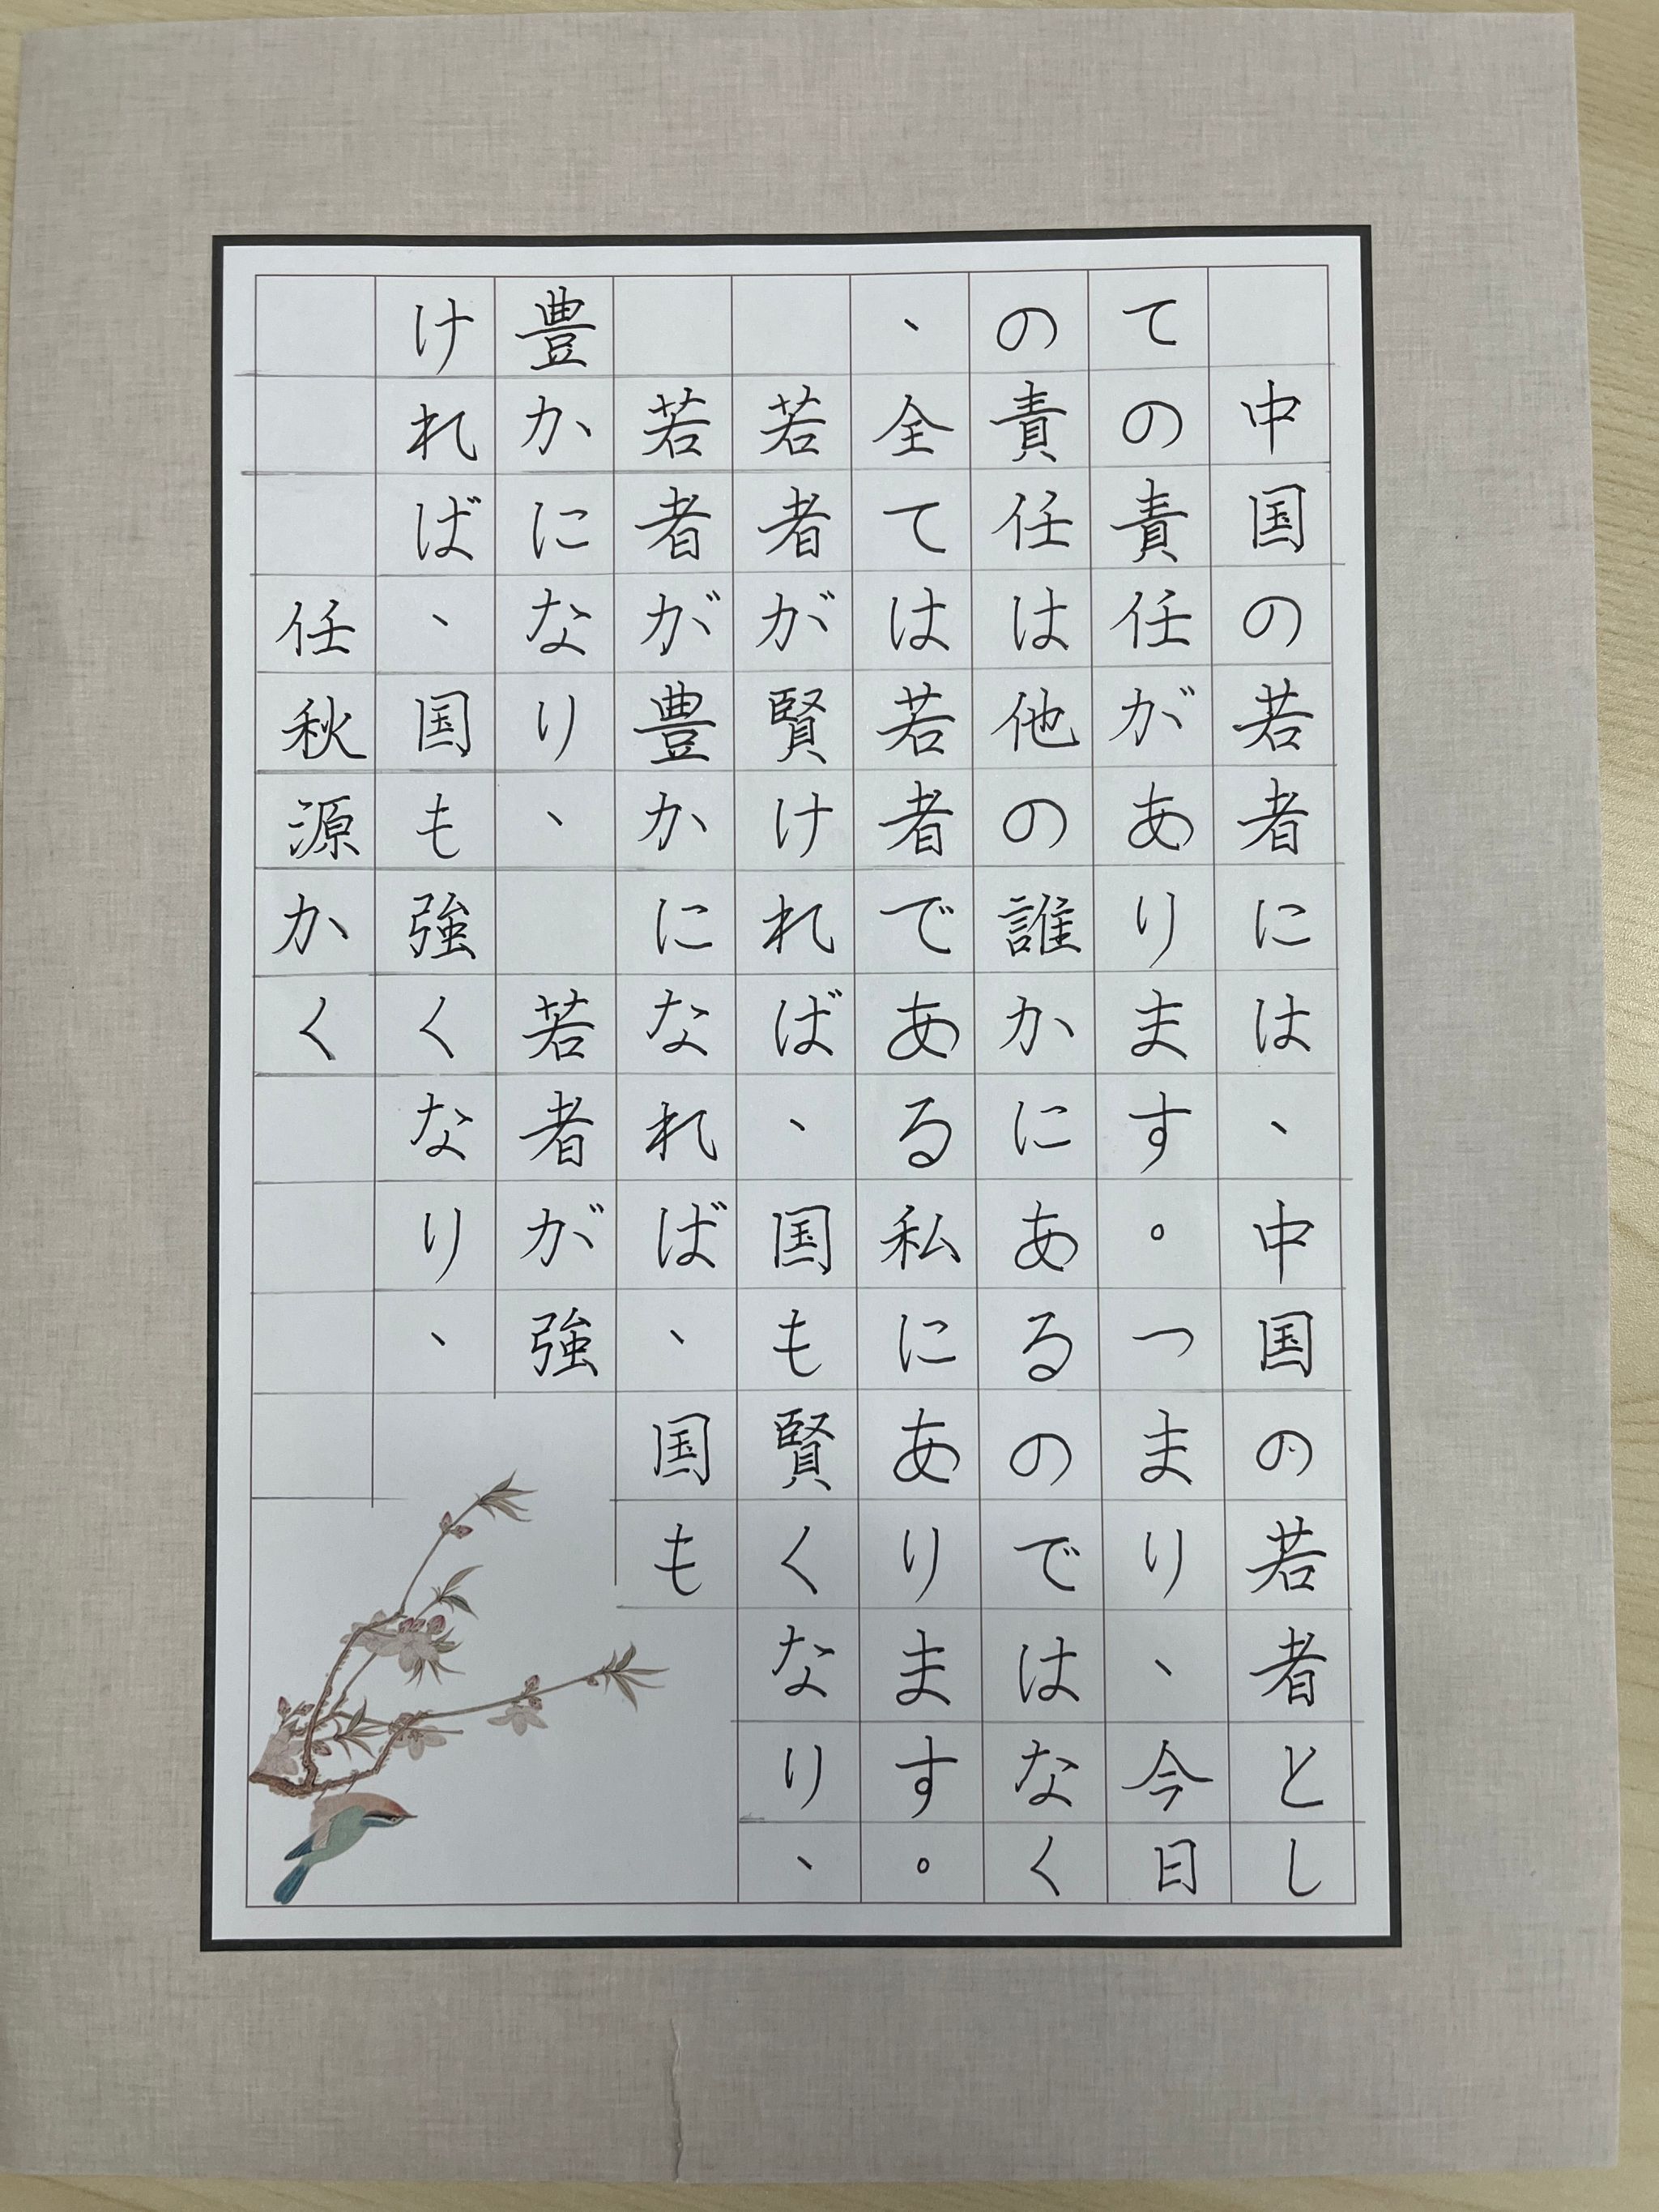 中国の若者には、中国の若者とし
ての責任があります。つまり、今日
の責任は他の誰かにあるのではなく
、全ては若者である私にあります。
若者が賢ければ、国も賢くなり、
若者が豊かになれば、国も
豊かになり、 若者が強
ければ、国も強くなり、
任秋源かく